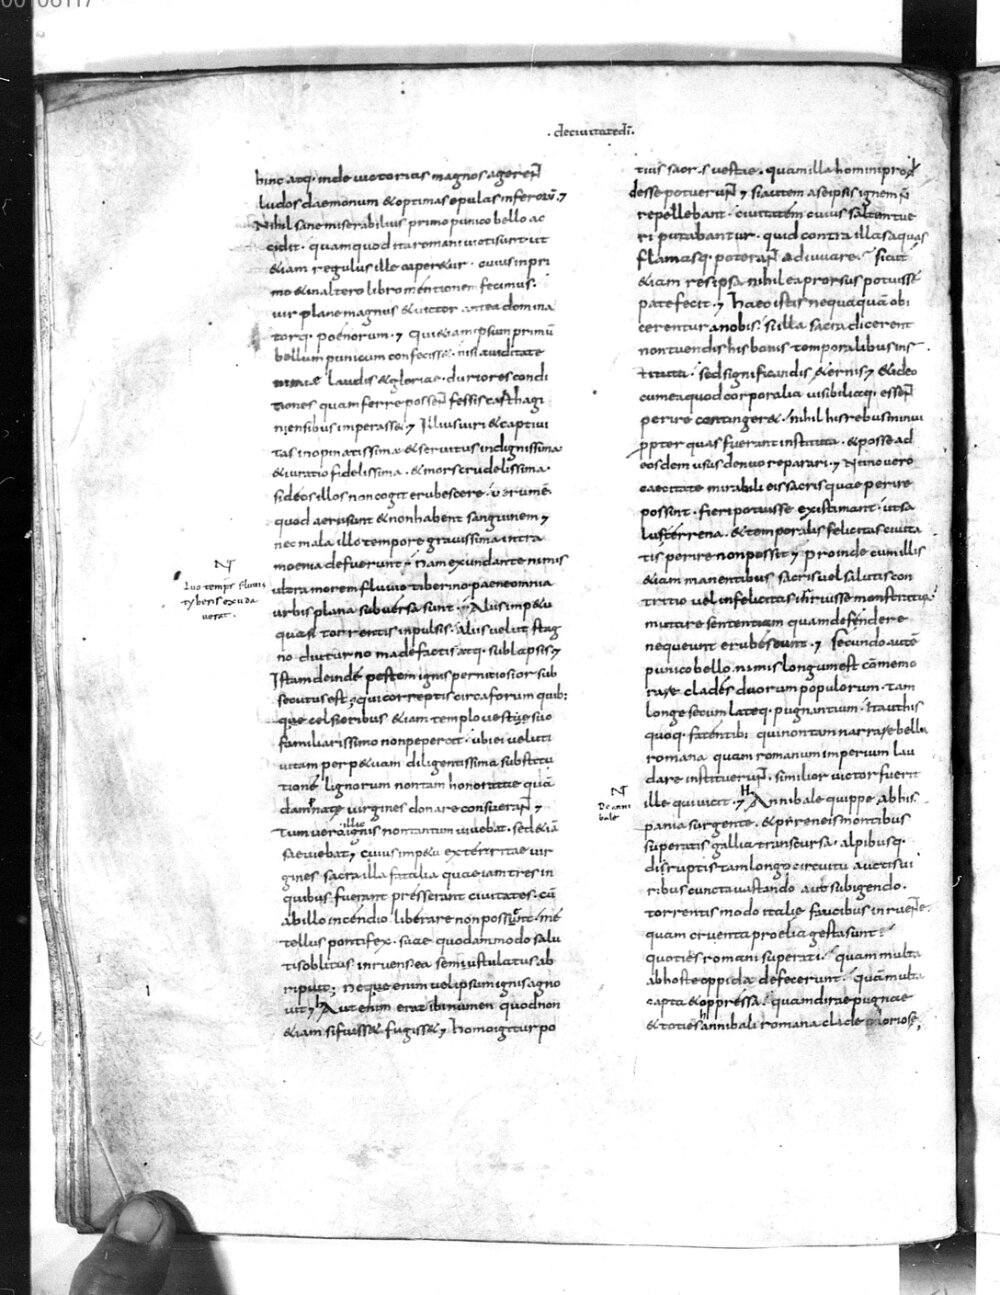 00106117
· deciuitatedī ·
hinc atq· inde uictorias magnos agerent
ludos daemonum & optimas epulas inferorū· ⁊
Nihil sane miserabilius primo punico bello ac
cidit · quam quod ita romani uicti sunt ut
&iam regulus ille caperetur · cuius in pri
mo & in altero libro mentionem fecimus·
uir plane magnus & uictor antea domina
torq· poenorum · ⁊ Qui &iam ipsum primū
bellum punicum confecisset· nisi auiditate
nimiae laudis & gloriae · duriores condi
tiones quam ferre possent fessis carthagi
niensibus imperasset ⁊ Illius uiri & captiui
tas inopinatissima & seruitus indignissima
& iuratio fidelissima · & mors crudelissima·
si deos illos non cogit erubescere · uerum ē
quod aerii sunt & non habent sanguinem ⁊
nec mala illo tempore grauissima intra
moenia defuerunt· Nam exundante nimis
ultra morem fluuio tiberino paene omnia
urbis plana subuersa sunt · Aliis impetu
quasi torrentis inpulsis· aliis uelut stag
no diuturno madefactis atq· sublapsis ⁊
Istam deinde pestem ignis perniciosior sub
secutus est· qui correptis circa forum quib;
que celsioribus &iam templo uestae suo
familiarissimo non pepercit · ubi ei ueluti
uitam perpetuam diligentissima substitu
tione lignorum non tam honoratae quā
damnatae uirgines donare consuerant ⁊
Tum uero illic ignis non tantum uiuebat· sed &iā
saeuiebat ⁊ cuius impetu exterritae uir
gines sacra illa fatalia quae iam tres in
quibus fuerant presserant ciuitates· cū
ab illo incendio liberare non possent· me
tellus pontifex· suae quodammodo salu
tis oblitus· inruens ea semiustulatus ab
ripuit; Neque enim uel ipsum ignis agno
uit ⁊ hAut enim erat ibi numen quod non
&iam si fuisset fugisset ⁊ homo igitur po
tius sacris uestae · quam illa homini prod
desse potuerunt ⁊ si autem a se ipsis ignem ñ
repellebant · ciuitatem cuius salutem tue
ri putabantur · quid contra illas aquas
flammasq· poterant adiuuare · sicut
&iam res ipsa nihil ea prorsus potuisse
patefecit · ⁊ Haec istis nequaquā obi
cerentur a nobis· si illa sacra dicerent
non tuendis his bonis temporalibus ins
tituta · sed significandis &ernis ⁊ & ideo
cum ea quod corporalia uisibiliaq· essent
perire contingeret · nihil his rebus minui
propter quas fuerant instituta · & posse ad
eosdem usus denuo reparari · ⁊ Nunc uero
caecitate mirabili eis sacris quae perire
possint · fieri potuisse existimant · ut sa
lus terrena · & temporalis felicitas ciuita
tis perire non possit ⁊ Proinde cum illis
&iam manentibus sacris uel salutis con
tritio uel infelicitas inruisse monstratur
mutare sententiam quam defendere
nequeunt erubescunt · ⁊ Secundo autē
punico bello nimis longum est cōmemo
rare clades duorum populorum · tam
longe secum lateq· pugnantium · ita ut his
quoq· fatentib; qui non tam narrare bella
romana quam romanum imperium lau
dare instituerunt · similior uictor fuerit
ille qui uicit · ⁊ hAnnibale quippe ab his
pania surgente · & pireneis montibus
superatis gallia transcursa · alpibusq·
disruptis tam longo circuitu auctis ui
ribus cuncta uastando aut subigendo ·
torrentis modo italie faucibus inruente·
quam cruenta proelia gesta sunt ·
quoties romani superati · quam multa
ab hoste oppida defecerunt · quā multa
capta & oppressa · quam dirae pugnae
& toties hannibali romana clade gloriose;
NT
Quo tempr̄ fluuiu
tyberis exuda
uerat ·
NT
De anni
bale